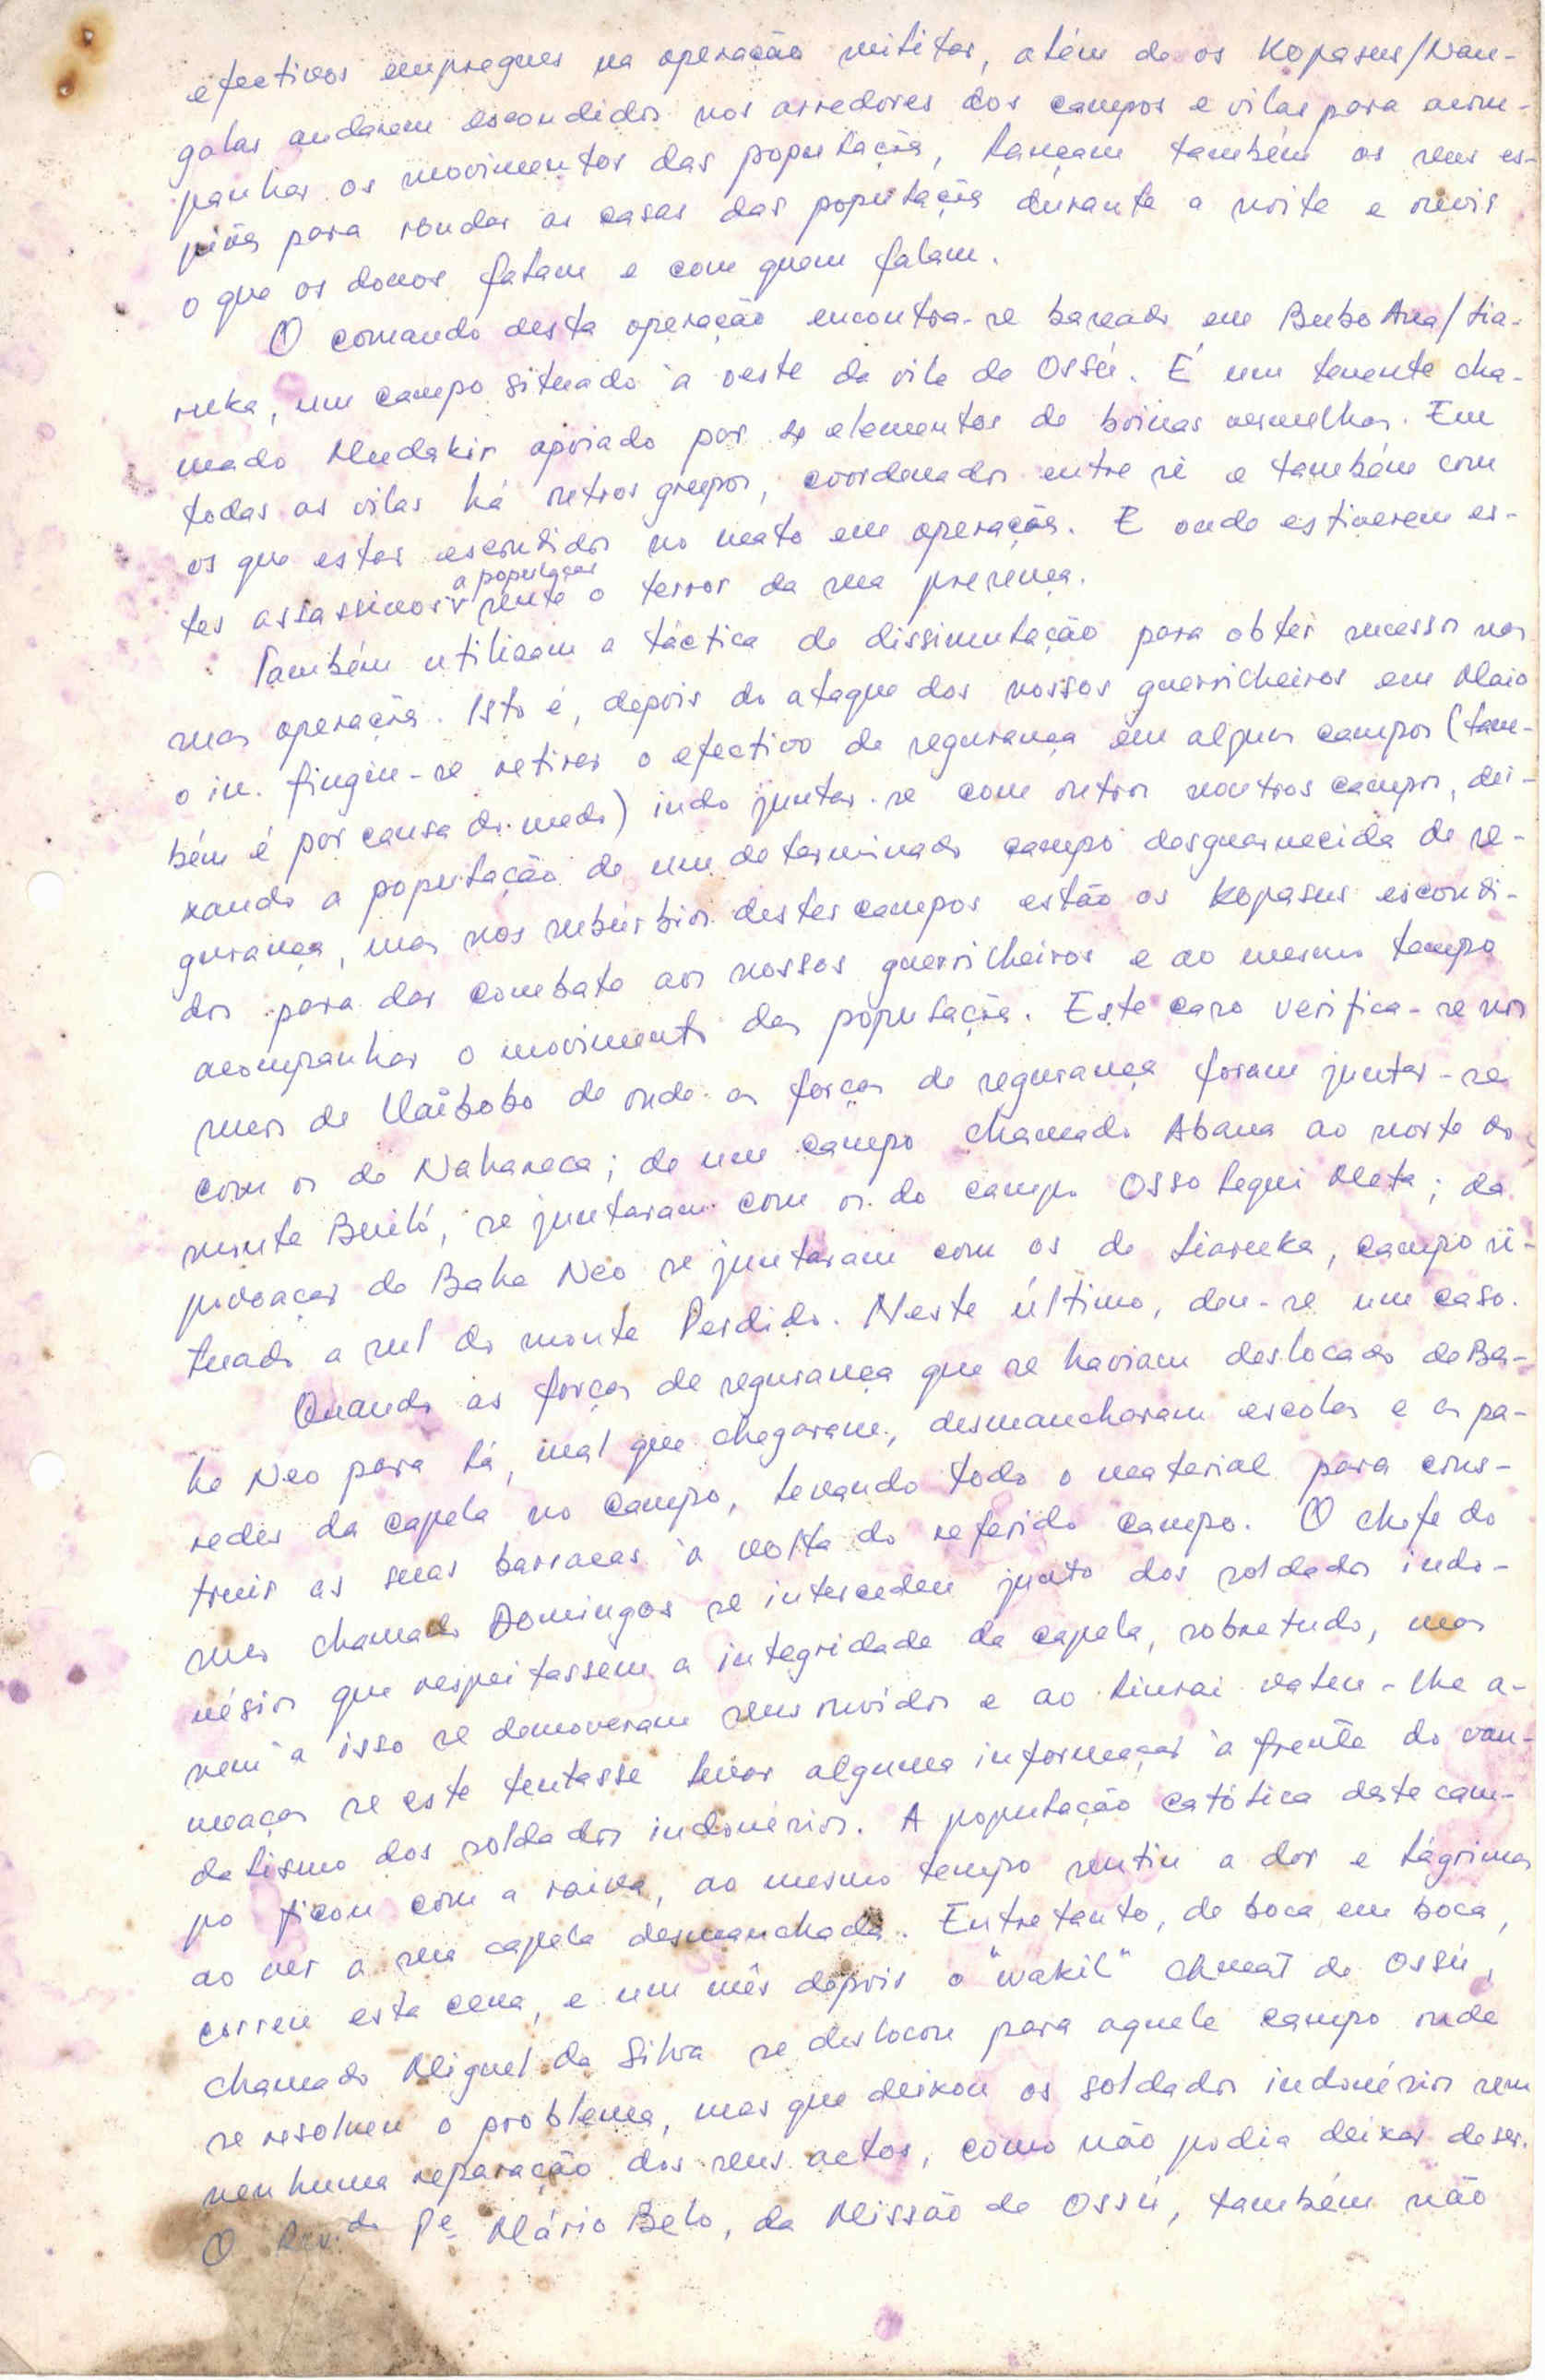 efectivos empregues na operação militar, além de os Kopasus/Nan-
galas andarem escondidos nos arredores dos campos e vilas para acom-
panhar os movimentos das populações, lançam também os seus es-
piões para rondar as casas das populações durante a noite e ouvir
o que os donos falam e com quem falam.
O comando desta operação encontra-se baseado em Bubo Ana/Lia-
ruka, um campo situado à oeste da vila de Ossú. É um tenente cha-
mado Mudakir apoiado por elementos de boinas vermelhas. Em
todas as vilas há outros grupos, coordenados entre si e também com
os que estão escondidos no mato em operações. E onde estiverem es-
a população
tes assassinos sente o terror da sua presença.
Também utilizam a táctica de dissimulação para obter sucessos nas
suas operações. Isto é, depois do ataque dos nossos guerrilheiros em Maio
o in. fingiu-se retirar o efectivo de segurança em alguns campos (tam-
bém é por causa do medo) indo juntar-se com outros noutros campos, dei-
xando a população de um determinado campo desguarnecida de se-
gurança, mas nos subúrbios destes campos estão os Kopasus escondi-
dos para dar combate aos nossos guerrilheiros e ao mesmo tempo
acompanhar o movimento das populações. Este caso verifica-se nos
sucos de Uaibobo de onde as forças de segurança foram juntar-se
com os de Nahareca; de um campo chamado Abana ao norte do
monte Builó, se juntaram com os do campo Osso Legui Meta; da
povoação de Baha Neo se juntaram com os de Liaruka, campo si-
tuado a sul do monte Perdido. Neste último, deu-se um caso.
Quando as forças de segurança que se haviam deslocado de Ba-
ha Neo para lá, mal que chegaram, desmancharam escolas e as pa-
redes da capela no campo, levando todo o material para cons-
truir as suas barracas à volta do referido campo. O chefe do
suco chamado Domingos se intercedeu junto dos soldados indo-
nésios que respeitassem a integridade da capela, sobretudo, mas
nem a isso se demoveram seus ouvidos e ao liurai valeu-lhe a-
meaças se este tentasse levar alguma informação à frente do van-
dalismo dos soldados indonésios. A população católica deste cam-
po ficou com a raiva, ao mesmo tempo sentiu a dor e lágrimas
ao ver a sua capela desmanchada. Entretanto, de boca em boca,
correu esta cena, e um mês depois o "wakil" chmat de Ossú,
chamado Miguel da Silva se deslocou para aquele campo onde
se resolveu o problema, mas que deixou os soldados indonésios sem
nenhuma reparação dos seus actos, como não podia deixar de ser.
O Rev.do Pe Mário Belo, da Missão de Ossú, também não